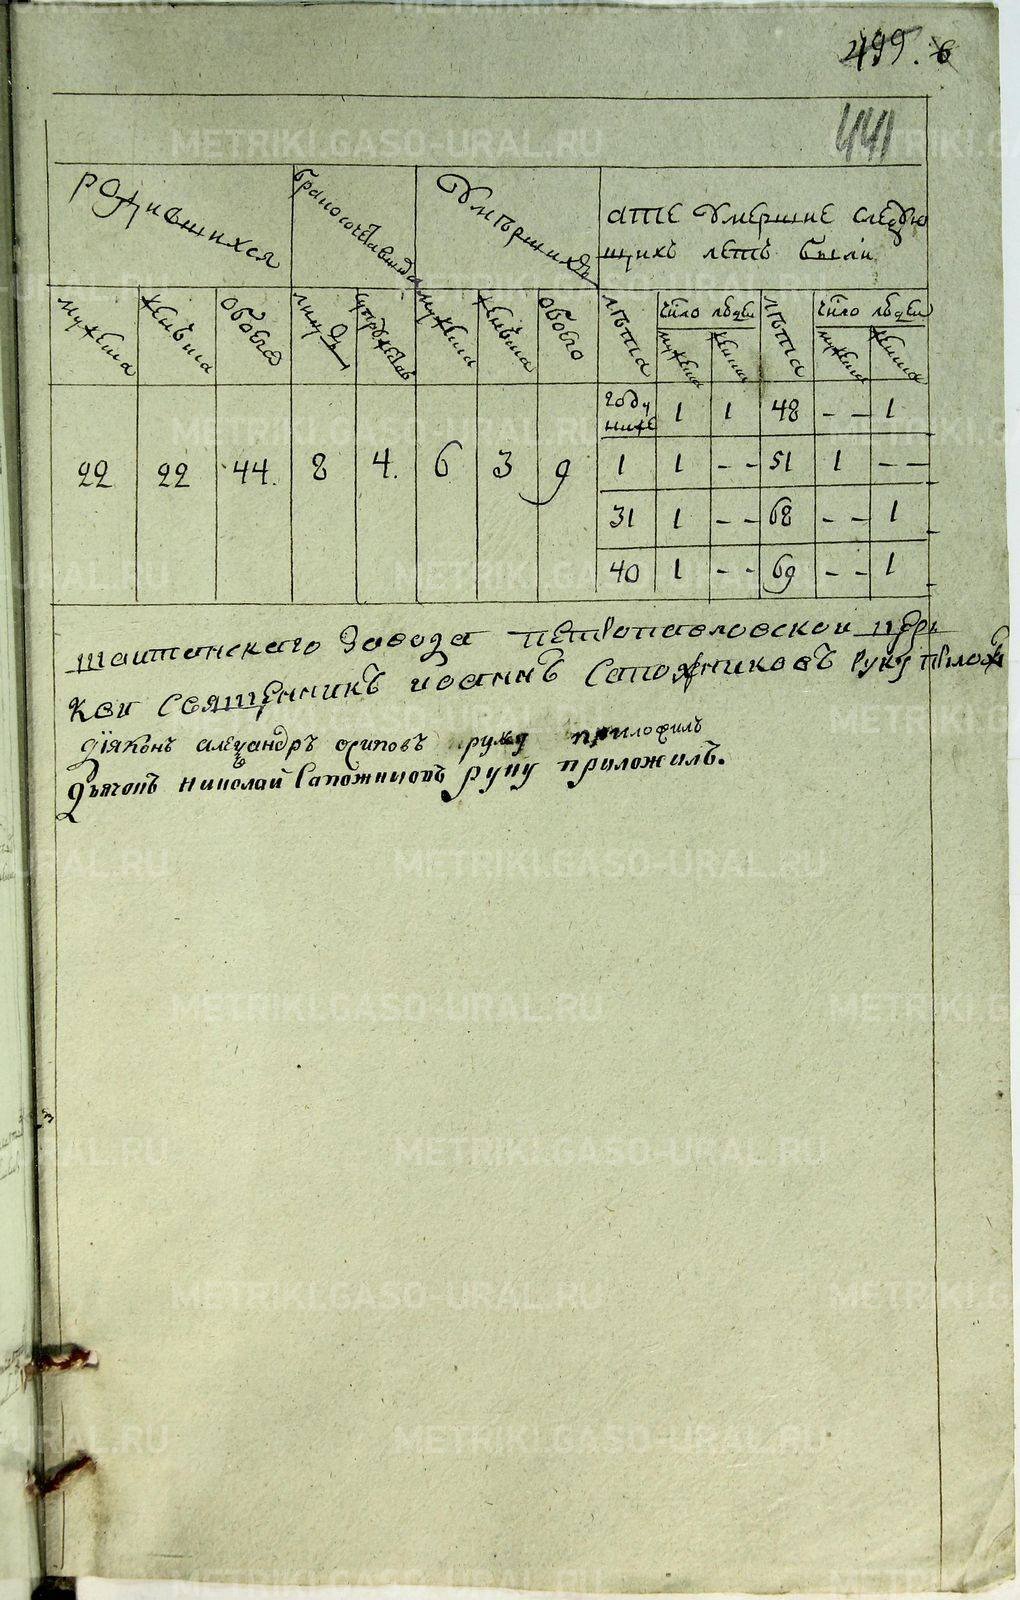 499. в
441
родившихся
бракосочетавшихся
Умершихъ
а те Умершие следую
щихъ летъ были
мужеска
женска
обоего
лицъ
супружествъ
мужеска
женска
обоего
лета
число людей
лета
число людей
мужеска
женска
мужеска
женска
году ниже 1 1 48 - - 1
22 22 44. 8 4. 6 3 9 1 1 - - 51 1 - -
31 1 - - 68 - - 1
40 1 - - 69 - - 1
шаитанскаго Завода петропавловской цер
кви Священникъ иоаннъ Сапожниковъ руку прилож
діяконъ алезандръ осиповъ руку приложилъ
Дьячокъ николай Сапожниковъ руку приложилъ.
METRIKI.GASO-URAL.RU